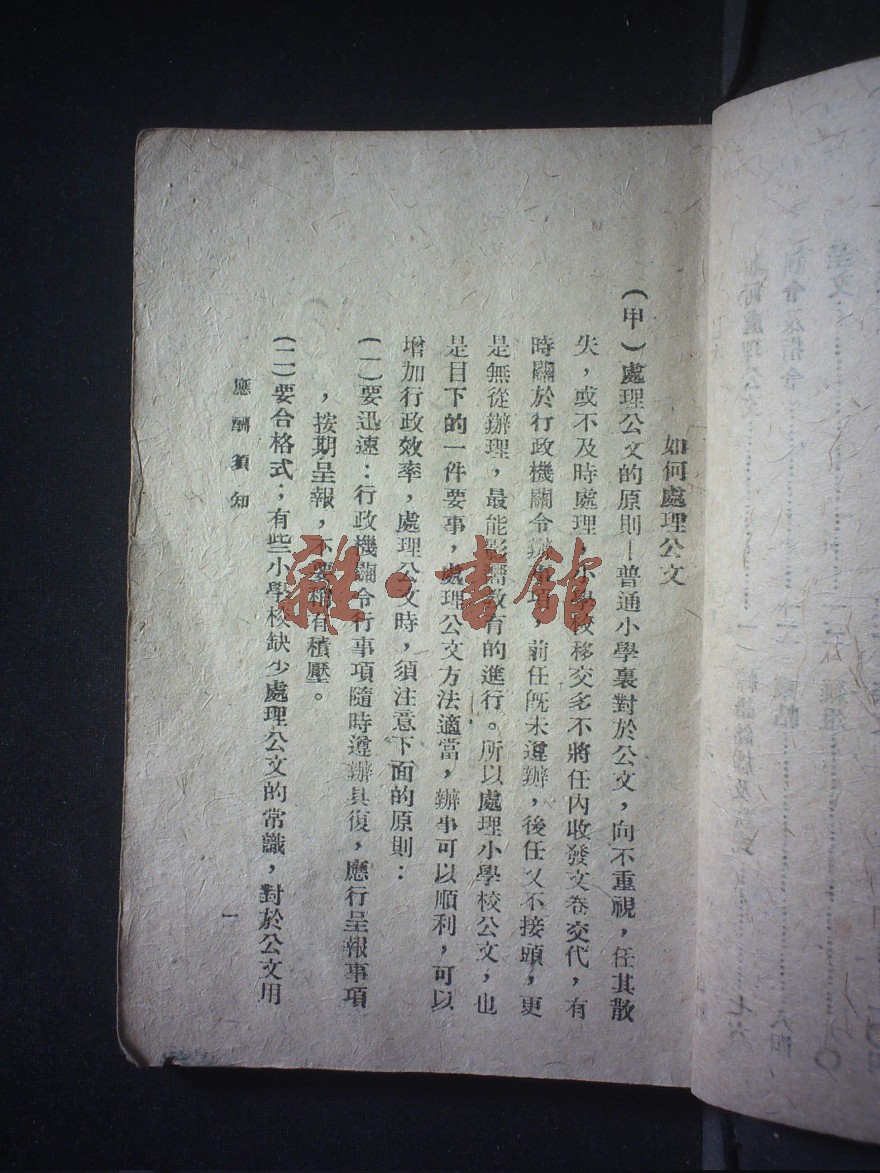 如何處理公文
(甲)處理公文的原則—普通小學裏對於公文，向不重視，任其散
失，或不及時處理，小學校移交多不將任內收發文卷交代，有
時關於行政機關令辦事項，前任既未遵辦，後任又不接頭，更
是無從辦理，最能影響教育的進行。所以處理小學校公文，也
是目下的一件要事，處理公文方法適當，辦事可以順利，可以
增加行政效率，處理公文時，須注意下面的原則：
(一)要迅速：行政機關令行事項隨時遵辦具復，應行呈報事項
，按期呈報，不要稍有積壓。
(二)要合格式；有些小學校缺少處理公文的常識，對於公文用
應酬須知
一
雜·書館